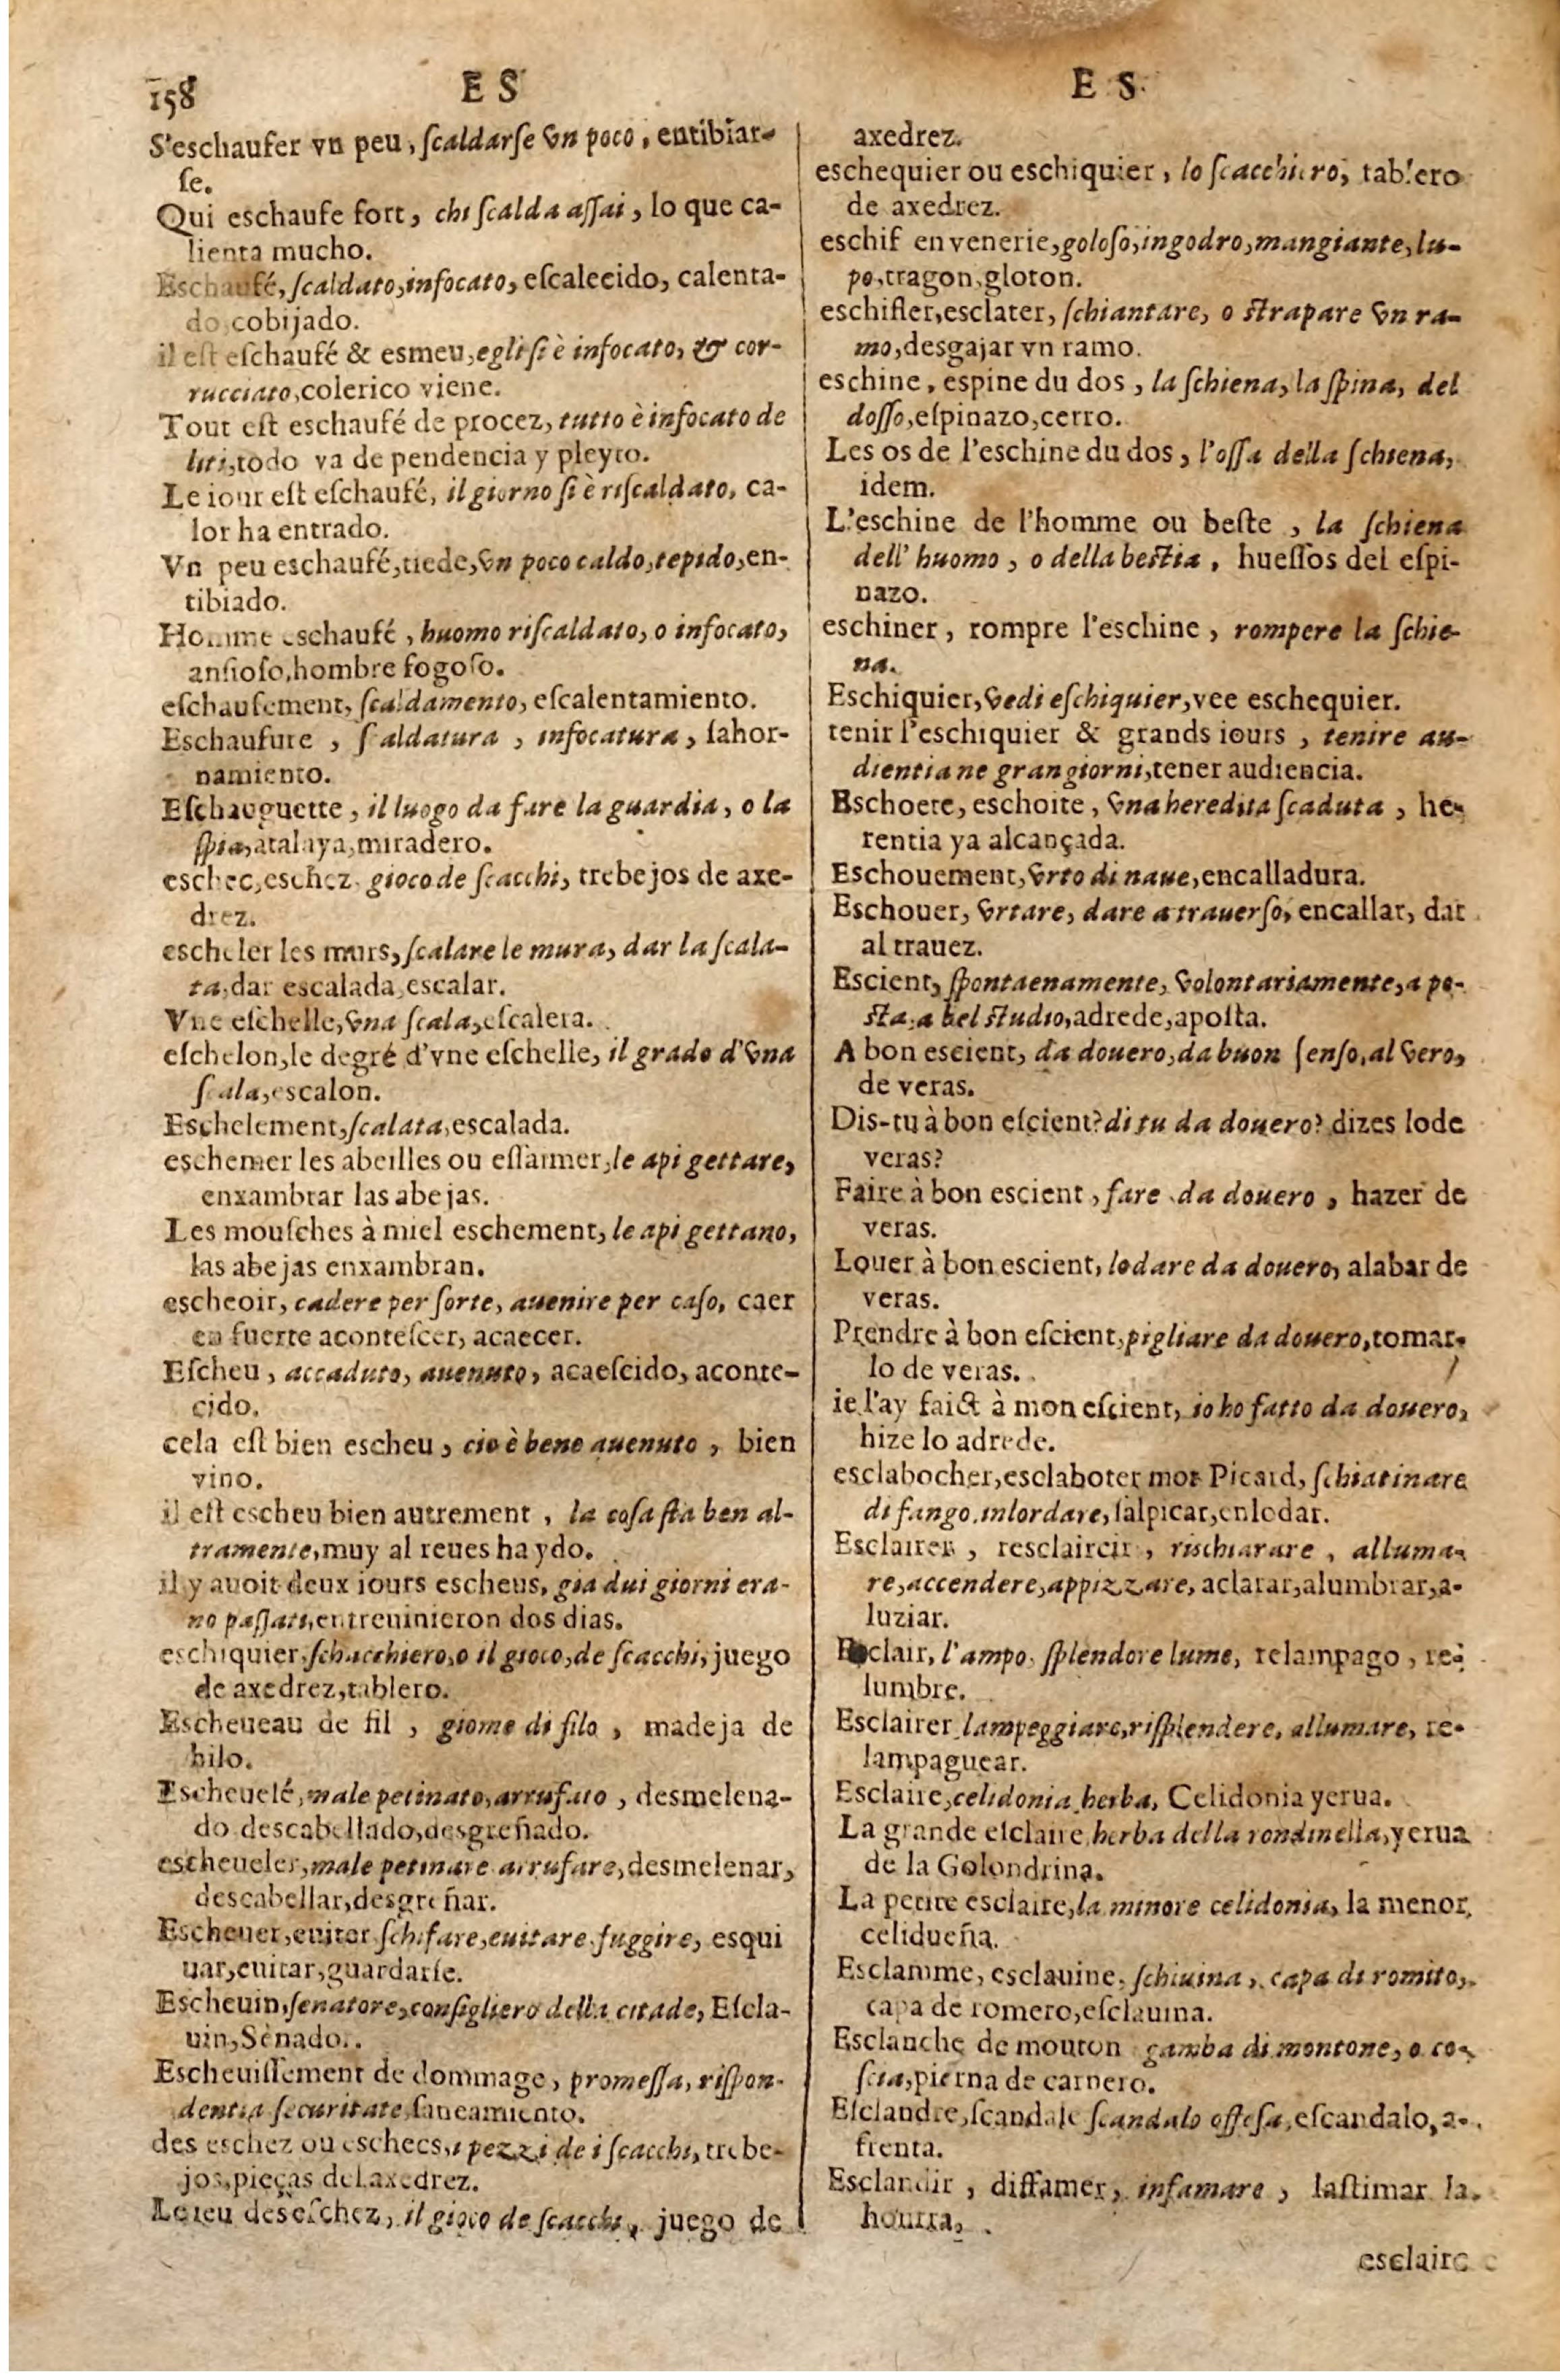 158 ES ES
S'eschaufer vn peu, ſcaldarſe vn poco, entibiar-
ſe.
Qui eschaufe fort, chi ſcalda aſſai, lo que ca-
lienta mucho.
Eschaufé, ſcaldato, infocato, eſcalecido, calenta-
do, cobijado.
il eſt eſchaufé & esmeu, egli ſi è infocato, & cor-
rucciato, colerico viene.
Tout eſt eschaufé de procez, tutto è infocato de
liti, todo va de pendencia y pleyto.
Le iour eſt eſchaufé, il giorno ſi è riſcaldato, ca-
lor ha entrado.
Vn peu eschaufé, tiede, vn poco caldo, tepido, en-
tibiado.
Homme eschaufé, huomo riſcaldato, o infocato,
anſioſo, hombre fogoſo.
eſchaufement, ſcaldamento, eſcalentamiento.
Eschaufure, ſcaldatura, infocatura, ſahor-
namiento.
Eſchauguette, il luogo da fare la guardia, o la
ſpia, atalaya, miradero.
eschec, eschez, gioco de ſcacchi, trebejos de axe-
drez.
escheler les murs, ſcalare le mura, dar la ſcala-
ta, dar escalada, escalar.
Vne eſchelle, vna ſcala, eſcalera.
eſchelon, le degré d'vne eſchelle, il grado d'vna
ſcala, escalon.
Eschelement, ſcalata, escalada.
eschemer les abeilles ou eſſaimer, le api gettare,
enxambrar las abejas.
Les mouſches à miel eschement, le api gettano,
las abejas enxambran.
escheoir, cadere per ſorte, auenire per caſo, caer
en ſuerte aconteſcer, acaecer.
Eſcheu, accaduto, auenuto, acaeſcido, aconte-
cido.
cela eſt bien escheu, cio è bene auenuto, bien
vino.
il eſt escheu bien autrement, la coſa ſta ben al-
tramente, muy al reues ha ydo.
il y auoit deux iours escheus, gia dui giorni era-
no paſſati, entreuinieron dos dias.
eschiquier, ſchacchiero, o il gioco, de ſcacchi, juego
de axedrez, tablero.
Escheueau de fil, giome di filo, madeja de
hilo.
Escheuelé, male petinato, arrufato, desmelena-
do descabellado, desgreñado.
escheueler, male petinare arrufare, desmelenar,
descabellar, desgreñar.
Escheuer, euiter ſchifare, euitare fuggire, esqui
uar, euitar, guardarſe.
Escheuin, ſenatore, conſigliero della citade, Eſcla-
uin, Senado..
Escheuiſſement de dommage, promeſſa, riſpon-
dentia ſecuritate, ſaneamiento.
des eschez ou eschecs, i pezzi de i ſcacchi, trebe-
jos, pieças del axedrez.
Le ieu des eſchez, il gioco de ſcacchi, juego de
axedrez.
eschequier ou eschiquier, lo ſcacchiero, tablero
de axedrez.
eschif en venerie, goloſo, ingodro, mangiante, lu-
po, tragon, gloton.
eschifler, esclater, ſchiantare, o ſtrapare vn ra-
mo, desgajar vn ramo.
eschine, espine du dos, la ſchiena, la ſpina, del
doſſo, eſpinazo, cerro.
Les os de l'eschine du dos, l'oſſa della ſchiena,
idem.
L'eschine de l'homme ou beſte, la ſchiena
dell' huomo, o della beſtia, hueſſos del eſpi-
nazo.
eschiner, rompre l'eschine, rompere la ſchie-
na.
Eschiquier, vedi eſchiquier, vee eschequier.
tenir l'eschiquier & grands iours, tenire au-
dientia ne gran giorni, tener audiencia.
Eschoete, eschoite, vna heredita ſcaduta, he-
rentia ya alcançada.
Eschouement, vrto di naue, encalladura.
Eschouer, vrtare, dare a trauerſo, encallar, dar
al trauez.
Escient, ſpontaenamente, volontariamente, a po-
ſta, a bel ſtudio, adrede, apoſta.
A bon escient, da douero, da buon ſenſo, al vero,
de veras.
Dis-tu à bon eſcient? di tu da douero? dizes lo de
veras?
Faire à bon escient, fare da douero, hazer de
veras.
Louer à bon escient, lodare da douero, alabar de
veras.
Prendre à bon eſcient, pigliare da douero, tomar-
lo de veras.
ie l'ay faict à mon eſcient, io ho fatto da douero,
hize lo adrede.
esclabocher, esclaboter mot Picard, ſchiatinare
di fango, inlordare, ſalpicar, enlodar.
Esclairer, resclaircir, riſchiarare, alluma-
re, accendere, appizzare, aclarar, alumbrar, a-
luziar.
Esclair, l'ampo, ſplendore lume, relampago, re-
lumbre.
Esclairer lampeggiare, riſplendere, allumare, re-
lampaguear.
Esclaire, celidonia herba, Celidonia yerua.
La grande eſclaire, herba della rondinella, yerua
de la Golondrina.
La petite esclaire, la minore celidonia, la menor,
celidueña.
Esclamme, esclauine, ſchiuina, capa di romito,
capa de romero, eſclauina.
Esclanche de mouton gamba di montone, o co-
ſcia, pierna de carnero.
Eſclandre, ſcandale ſcandalo offeſa, eſcandalo, a-
frenta.
Esclandir, diffamer, infamare, laſtimar la
hourra,
esclaire